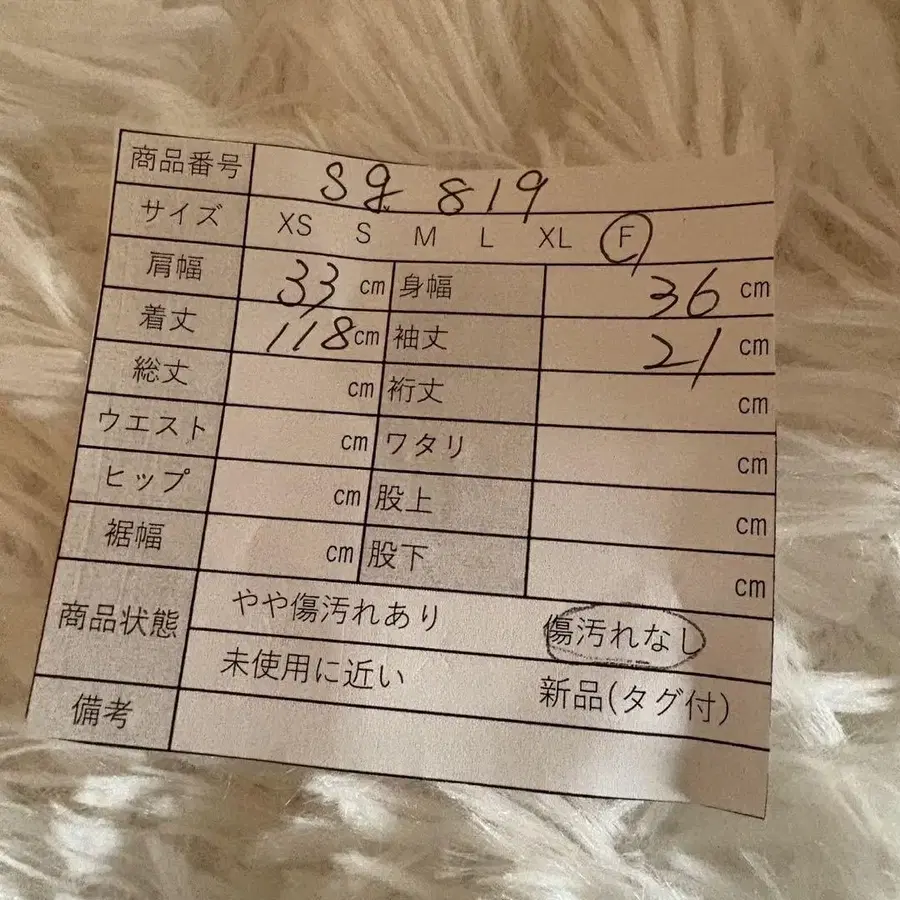 商品番号 sg 819
サイズ XS S M L XL F
肩幅 33 cm 身幅 36 cm
着丈 118 cm 袖丈 21 cm
総丈 cm 裄丈 cm
ウエスト cm ワタリ cm
ヒップ cm 股上 cm
裾幅 cm 股下 cm
商品状態 やや傷汚れあり 傷汚れなし
未使用に近い 新品(タグ付)
備考